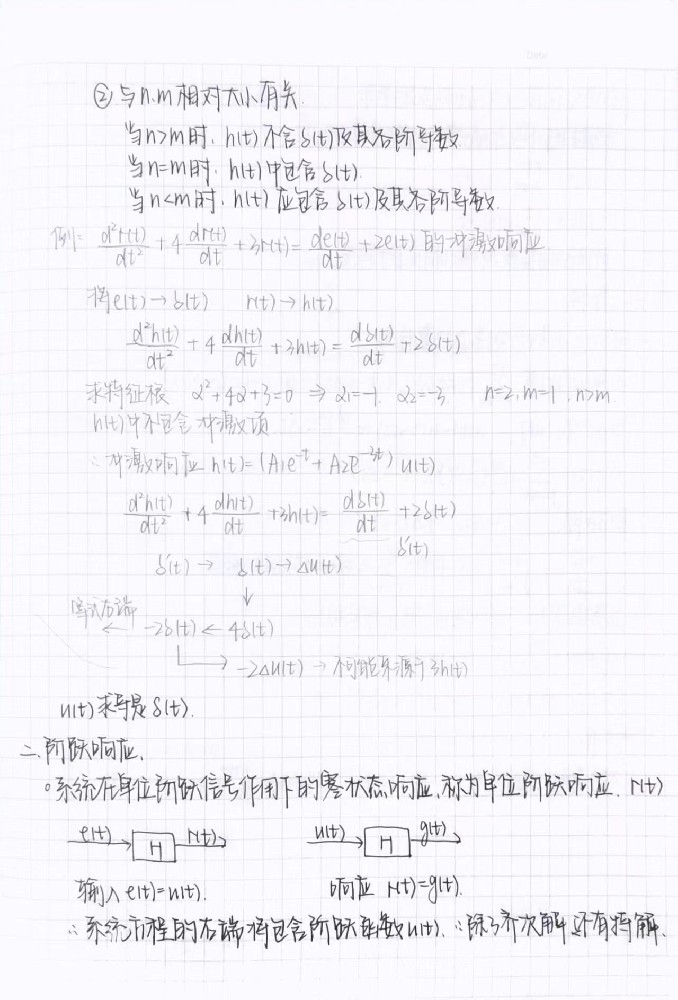 ② 与n.m相对大小有关.
当n>m时, h(t)不含δ(t)及其各阶导数
当n=m时, h(t)中包含δ(t).
当n<m时, h(t)应包含δ(t)及其各阶导数.
例: d²r(t)/dt² + 4 dr(t)/dt + 3r(t) = de(t)/dt + 2e(t) 的冲激响应
将e(t)→δ(t) r(t)→h(t)
d²h(t)/dt² + 4 dh(t)/dt + 3h(t) = dδ(t)/dt + 2δ(t)
求特征根 α²+4α+3=0 ⇒ α₁=-1. α₂=-3 n=2, m=1, n>m
h(t)中不包含冲激项
∴冲激响应 h(t)=(A₁e^-t + A₂e^-3t) u(t)
d²h(t)/dt² + 4 dh(t)/dt + 3h(t) = dδ(t)/dt + 2δ(t)
δ'(t)
δ'(t) → δ(t) → Δu(t)
↓
等式右端 ← -2δ(t) ← 4δ(t)
→ -2Δu(t) → 不可能来源于3h(t)
u(t)求导是δ(t).
二. 阶跃响应.
。系统在单位阶跃信号作用下的零状态响应,称为单位阶跃响应. r(t)
e(t) H r(t) u(t) H g(t)
输入 e(t)=u(t). 响应 r(t)=g(t).
∴系统方程的右端将包含阶跃函数u(t). ∴除了齐次解还有特解.